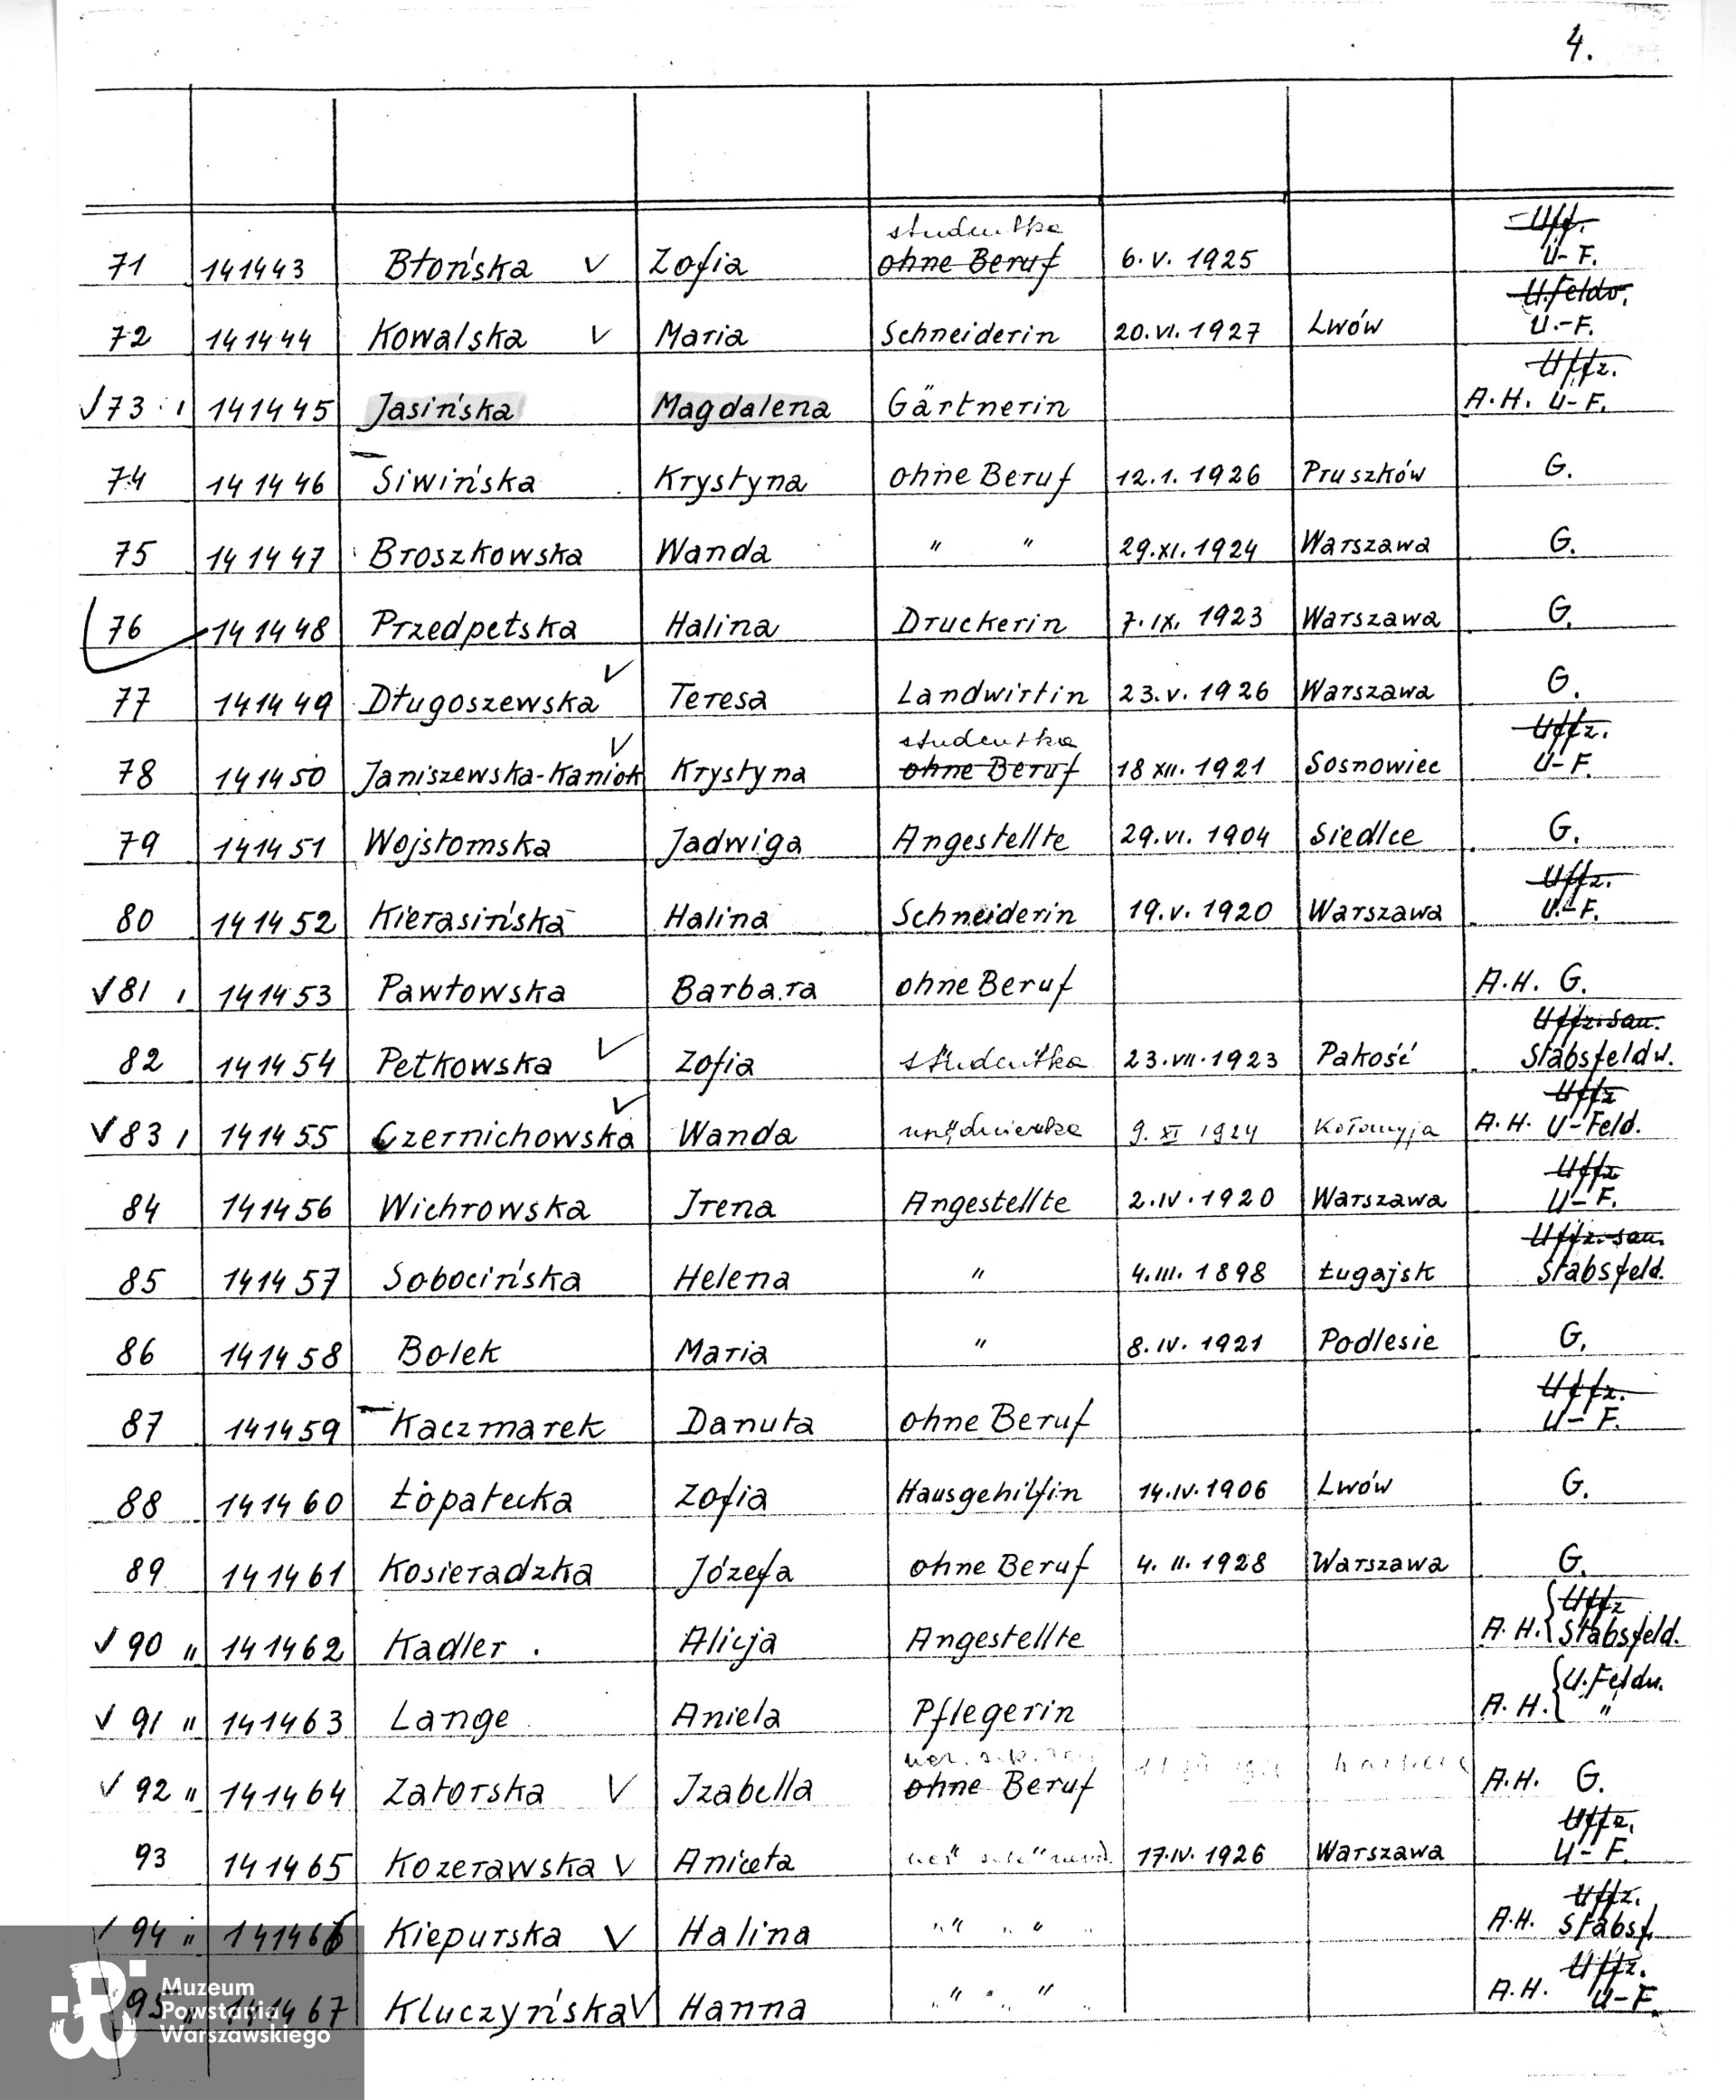 4.
studentka Uff.
71 141443 Błońska V Zofia ohne Beruf 6.V.1925 U-F.
U.feldw.
72 141444 Kowalska V Maria Schneiderin 20.VI.1927 Lwów U.-F.
Uffz.
√73 ı 141445 Jasińska Magdalena Gärtnerin A.H. U-F.
74 141446 Siwińska Krystyna ohne Beruf 12.1.1926 Pruszków G.
75 141447 Broszkowska Wanda " " 29.XI.1924 Warszawa G.
76 141448 Przedpełska Halina Druckerin 7.IX.1923 Warszawa G.
77 141449 Długoszewska V Teresa Landwirtin 23.V.1926 Warszawa G.
studentka Uffz.
78 141450 Janiszewska-Kaniok V Krystyna ohne Beruf 18 XII.1921 Sosnowiec U-F.
79 141451 Wojsłomska Jadwiga Angestellte 29.VI.1904 Siedlce G.
Uffz.
80 141452 Kierasińska Halina Schneiderin 19.V.1920 Warszawa U.-F.
√81 ı 141453 Pawłowska Barbara ohne Beruf A.H. G.
Uffz.San.
82 141454 Petkowska V Zofia studentka 23.VII.1923 Pakość Stabsfeldw.
Uffz
√83 ı 141455 Czernichowska V Wanda urzędniczka 9.XI 1924 Kołomyja A.H. U-Feld.
Uffz
84 141456 Wichrowska Irena Angestellte 2.IV.1920 Warszawa U-F.
Uffz.San.
85 141457 Sobocińska Helena " 4.III.1898 Ługajsk Stabsfeld.
86 141458 Bolek Maria " 8.IV.1921 Podlesie G.
Uffz.
87 141459 Kaczmarek Danuta ohne Beruf U-F.
88 141460 Łopatecka Zofia Hausgehilfin 14.IV.1906 Lwów G.
89 141461 Kosieradzka Józefa ohne Beruf 4.II.1928 Warszawa G.
Uffz
√90 " 141462 Kadler. Alicja Angestellte A.H. Stabsfeld.
U.Feldw.
√91 " 141463 Lange Aniela Pflegerin A.H. "
√92 " 141464 Zatorska V Izabella ohne Beruf A.H. G.
Uffz.
93 141465 Kozerawska V Aniceta 17.IV.1926 Warszawa U-F.
Uffz.
√94 " 141466 Kiepurska V Halina " " A.H. Stabsf.
Uffz.
95 " 141467 Kluczyńska V Hanna " " " A.H. U-F.
Muzeum
Powstania
Warszawskiego